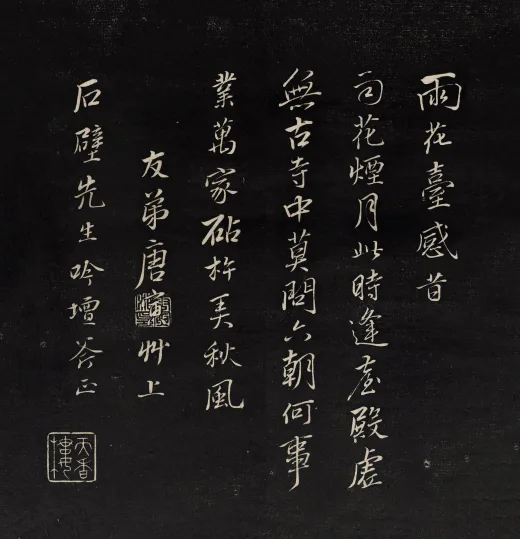 雨花臺感昔
司花煙月此時逢臺殿虛
無古寺中莫問六朝何事
業萬家砧杵美秋風
友弟唐寅艸上
石壁先生吟壇荅正
天香樓